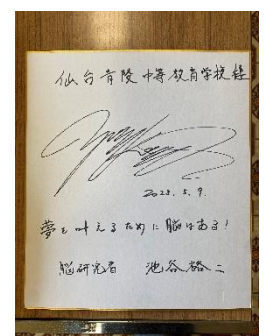 仙台青陵中等教育学校様
2023. 5. 9.
夢を叶えるために脳はある!
脳研究者 池谷裕二